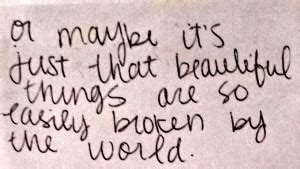 or maybe it's
just that beautiful
things are so
easily broken by
the world.